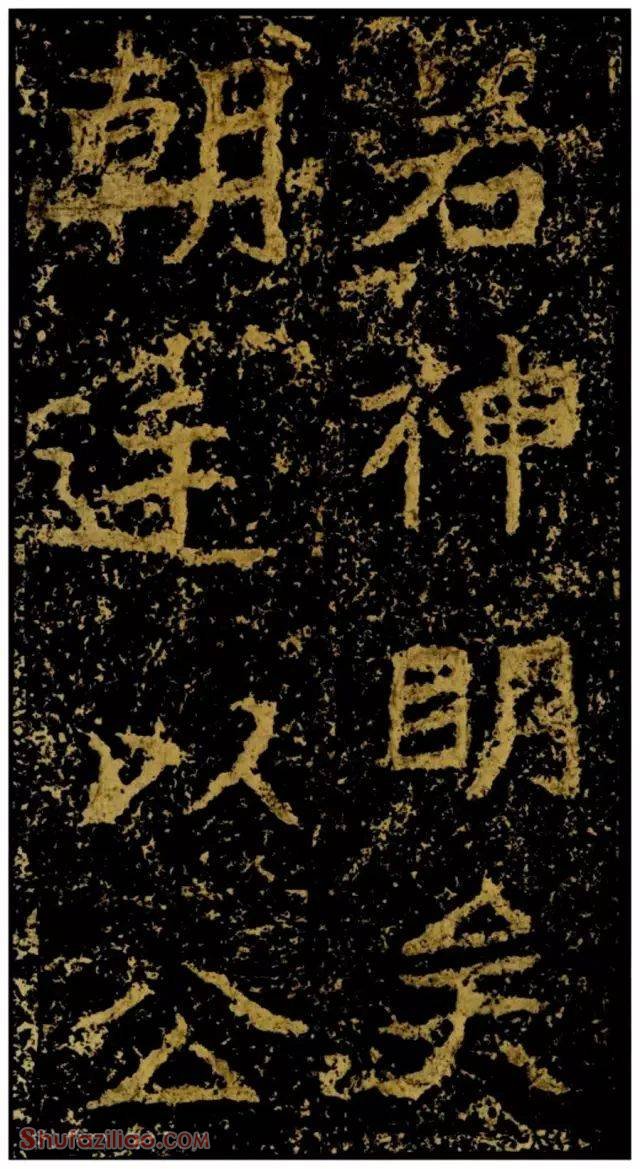 若神明矣
朝廷以公
Shufaziliao.COM